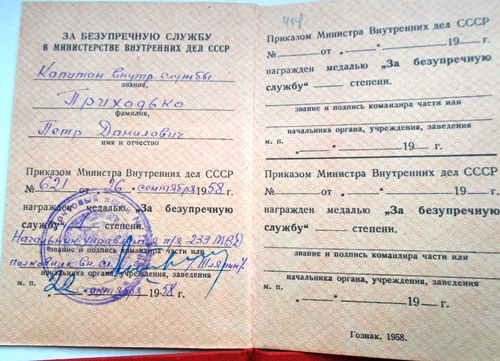 ЗА БЕЗУПРЕЧНУЮ СЛУЖБУ
В МИНИСТЕРСТВЕ ВНУТРЕННИХ ДЕЛ СССР
Капитан внутр. службы
звание,
Приходько
фамилия,
Петр Данилович
имя и отчество
Приказом Министра Внутренних дел СССР
№ 621 от „26" сентября 1958 г.
награжден медалью „За безупречную
службу" степени.
Начальник управления п/я 233 МВД
звание и подпись командира части или
полковник вн. сл.
начальника органа, учреждения, заведения
м. п. „22" октября 1958 г.
Приказом Министра Внутренних дел СССР
№ от „ " 19 г.
награжден медалью „За безупречную
службу" степени.
звание и подпись командира части или
начальника органа, учреждения, заведения
м. п. „ " 19 г.
Приказом Министра Внутренних дел СССР
№ от „ " 19 г.
награжден медалью „За безупречную
службу" степени.
звание и подпись командира части или
начальника органа, учреждения, заведения
м. п. „ " 19 г.
Гознак. 1958.